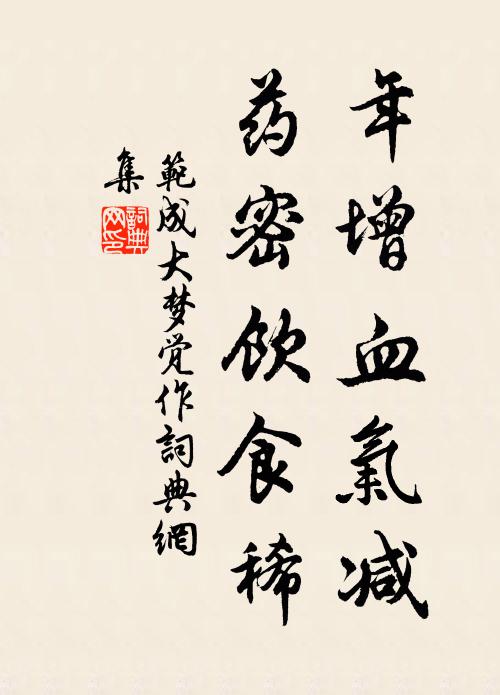 年增血氣减
药密飲食稀
範成大梦觉作詞典網
集
詞典
网印